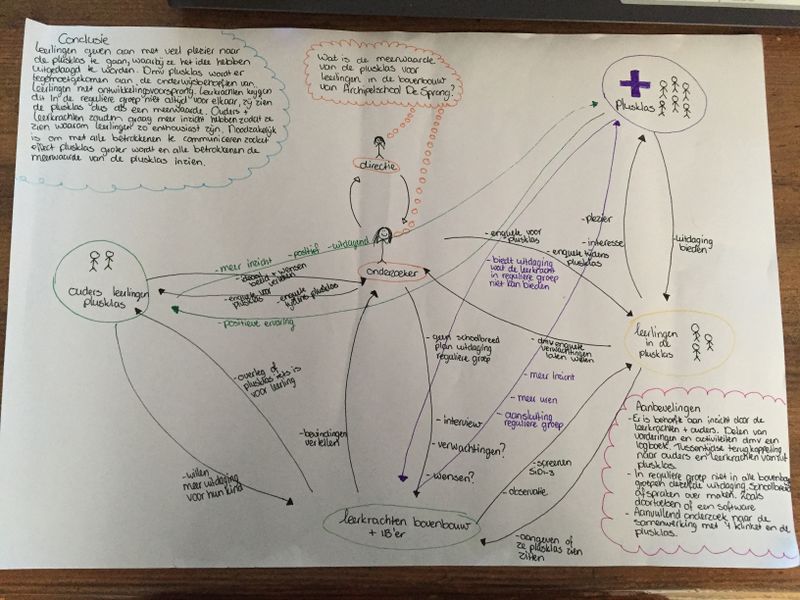 Conclusie
leerlingen geven aan met veel plezier naar
de plusklas te gaan, waarbij ze het idee hebben
uitgedaagd te worden. Dmv plusklas wordt er
tegemoetgekomen aan de onderwijsbehoeften van
leerlingen met ontwikkelingsvoorsprong. Leerkrachten krijgen
dit in de reguliere groep niet altijd voor elkaar, zij zien
de plusklas dus als een meerwaarde. Ouders +
leerkrachten zouden graag meer inzicht hebben zodat ze
zien waarom leerlingen zo enthousiast zijn. Noodzakelijk
is om met alle betrokkenen te communiceren zodat
effect plusklas groter wordt en alle betrokkenen de
meerwaarde van de plusklas inzien.
Wat is de meerwaarde
van de plusklas voor
leerlingen in de bovenbouw
van Archipelschool De Sprong?
plusklas
directie
onderzoeker
ouders leerlingen
plusklas
- meer inzicht
- positief
- uitdagend
- wensen
- enquête voor
plusklas
- enquête
tijdens plusklas
- positieve ervaring
- enquête voor
plusklas
- enquête tijdens
plusklas
- biedt uitdaging
wat de leerkracht
in reguliere groep
niet kan bieden
- plezier
- interesse
- uitdaging
bieden
leerlingen
in de
plusklas
- geen schoolbreed
plan uitdaging
reguliere groep
- dmv enquête
verwachtingen
laten weten
- meer inzicht
- meer uren
- aansluiting
reguliere groep
- overleg of
plusklas iets is
voor leerling
- bevindingen
vertellen
- interview
- verwachtingen?
- wensen?
- willen
meer uitdaging
voor hun kind
- screenen
SiDi-3
- observatie
- aangeven of
ze plusklas zien
zitten
leerkrachten bovenbouw
+ IB'er
Aanbevelingen
- Er is behoefte aan inzicht door de
leerkrachten + ouders. Delen van
vorderingen en activiteiten dmv een
logboek. Tussentijdse terugkoppeling
naar ouders en leerkrachten vanuit
plusklas.
- In reguliere groep niet in alle bovenbouw
groepen dezelfde uitdaging. Schoolbreed
afspraken over maken. Zoals
doortoetsen of een software
- Aanvullend onderzoek naar de
samenwerking met 't klinket en de
plusklas.